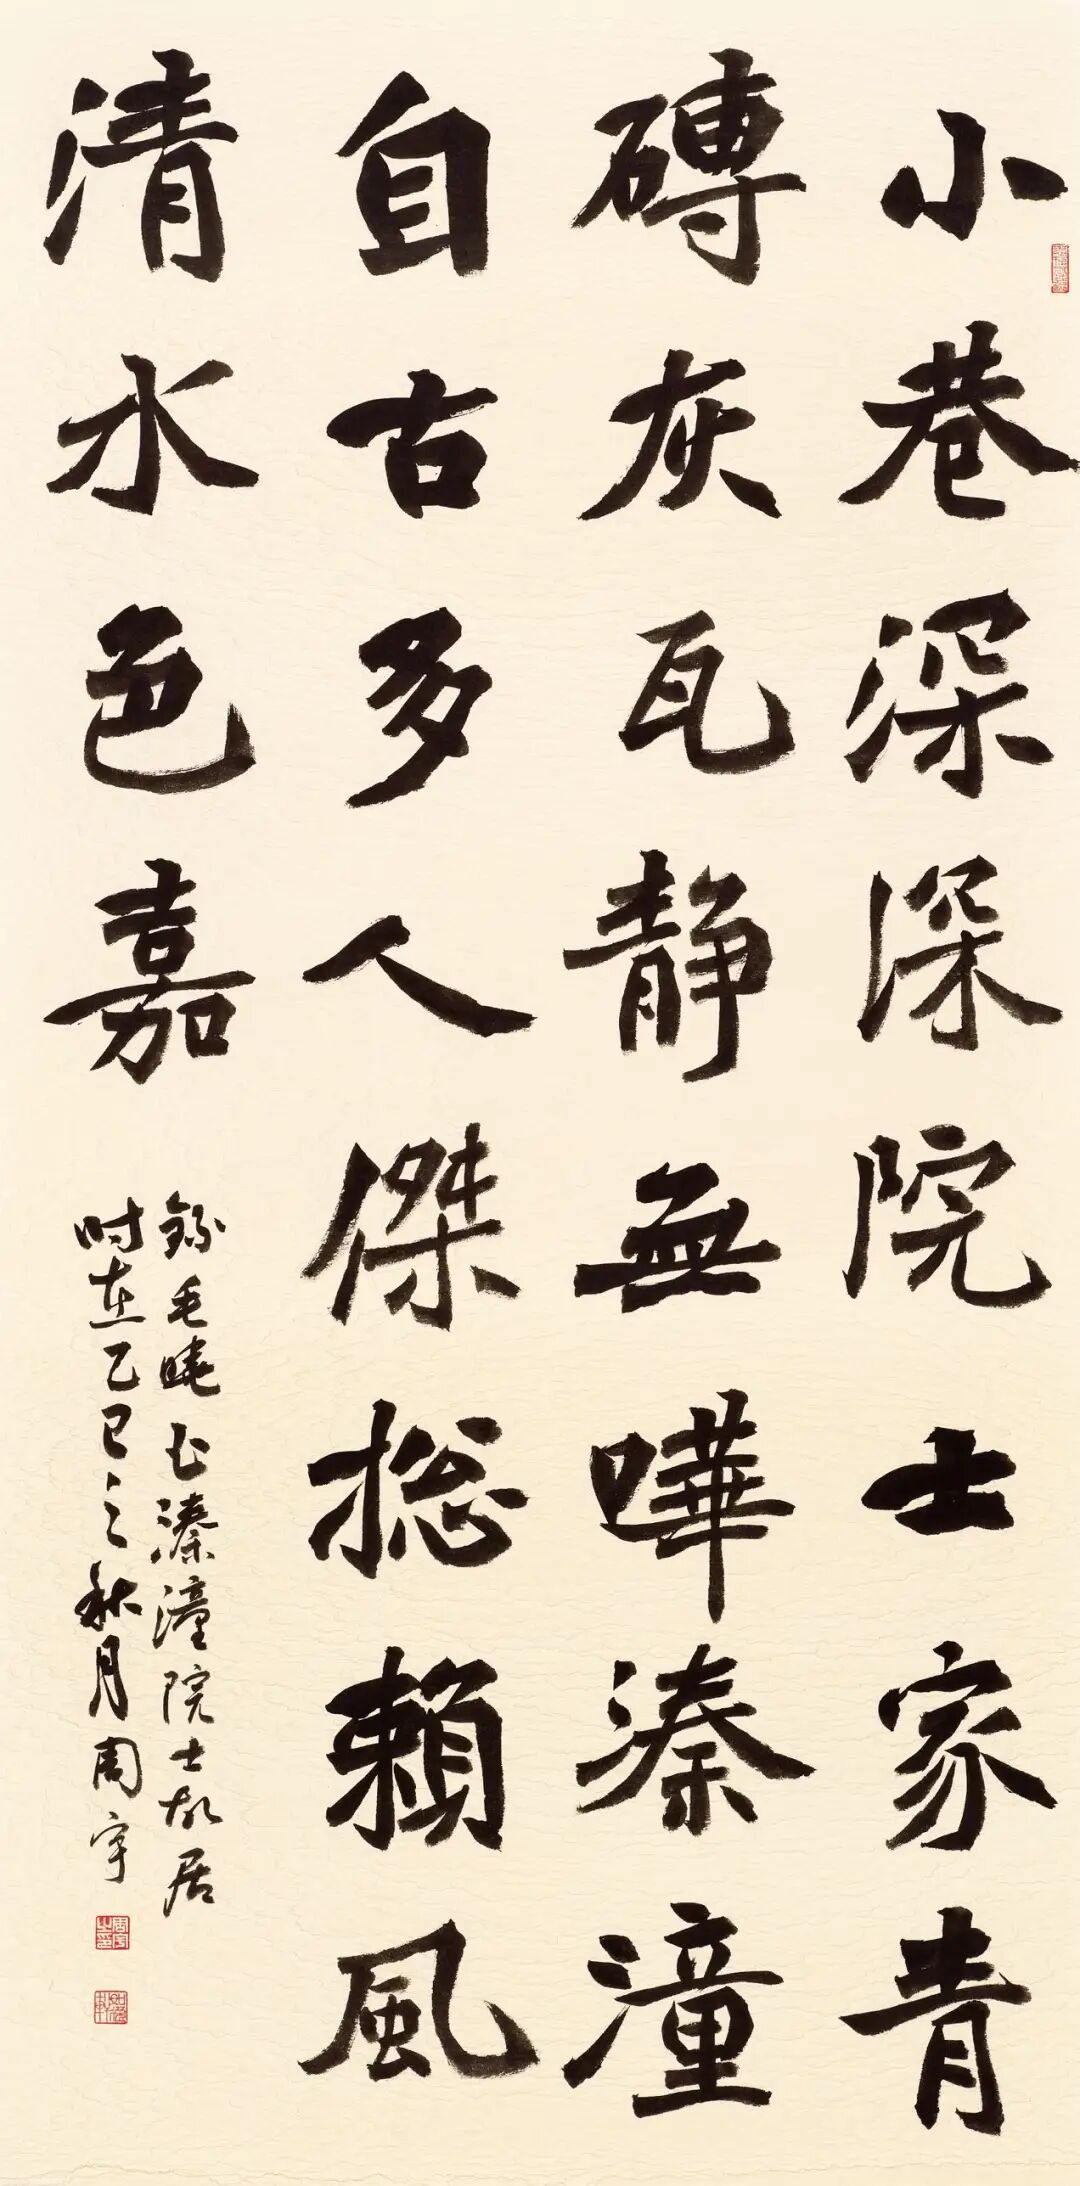 小巷深深院士家青
磚灰瓦靜無嘩溱潼
自古多人傑捴賴風
清水色嘉
錄毛曉玉溱潼院士故居
时在乙巳之秋月周宇